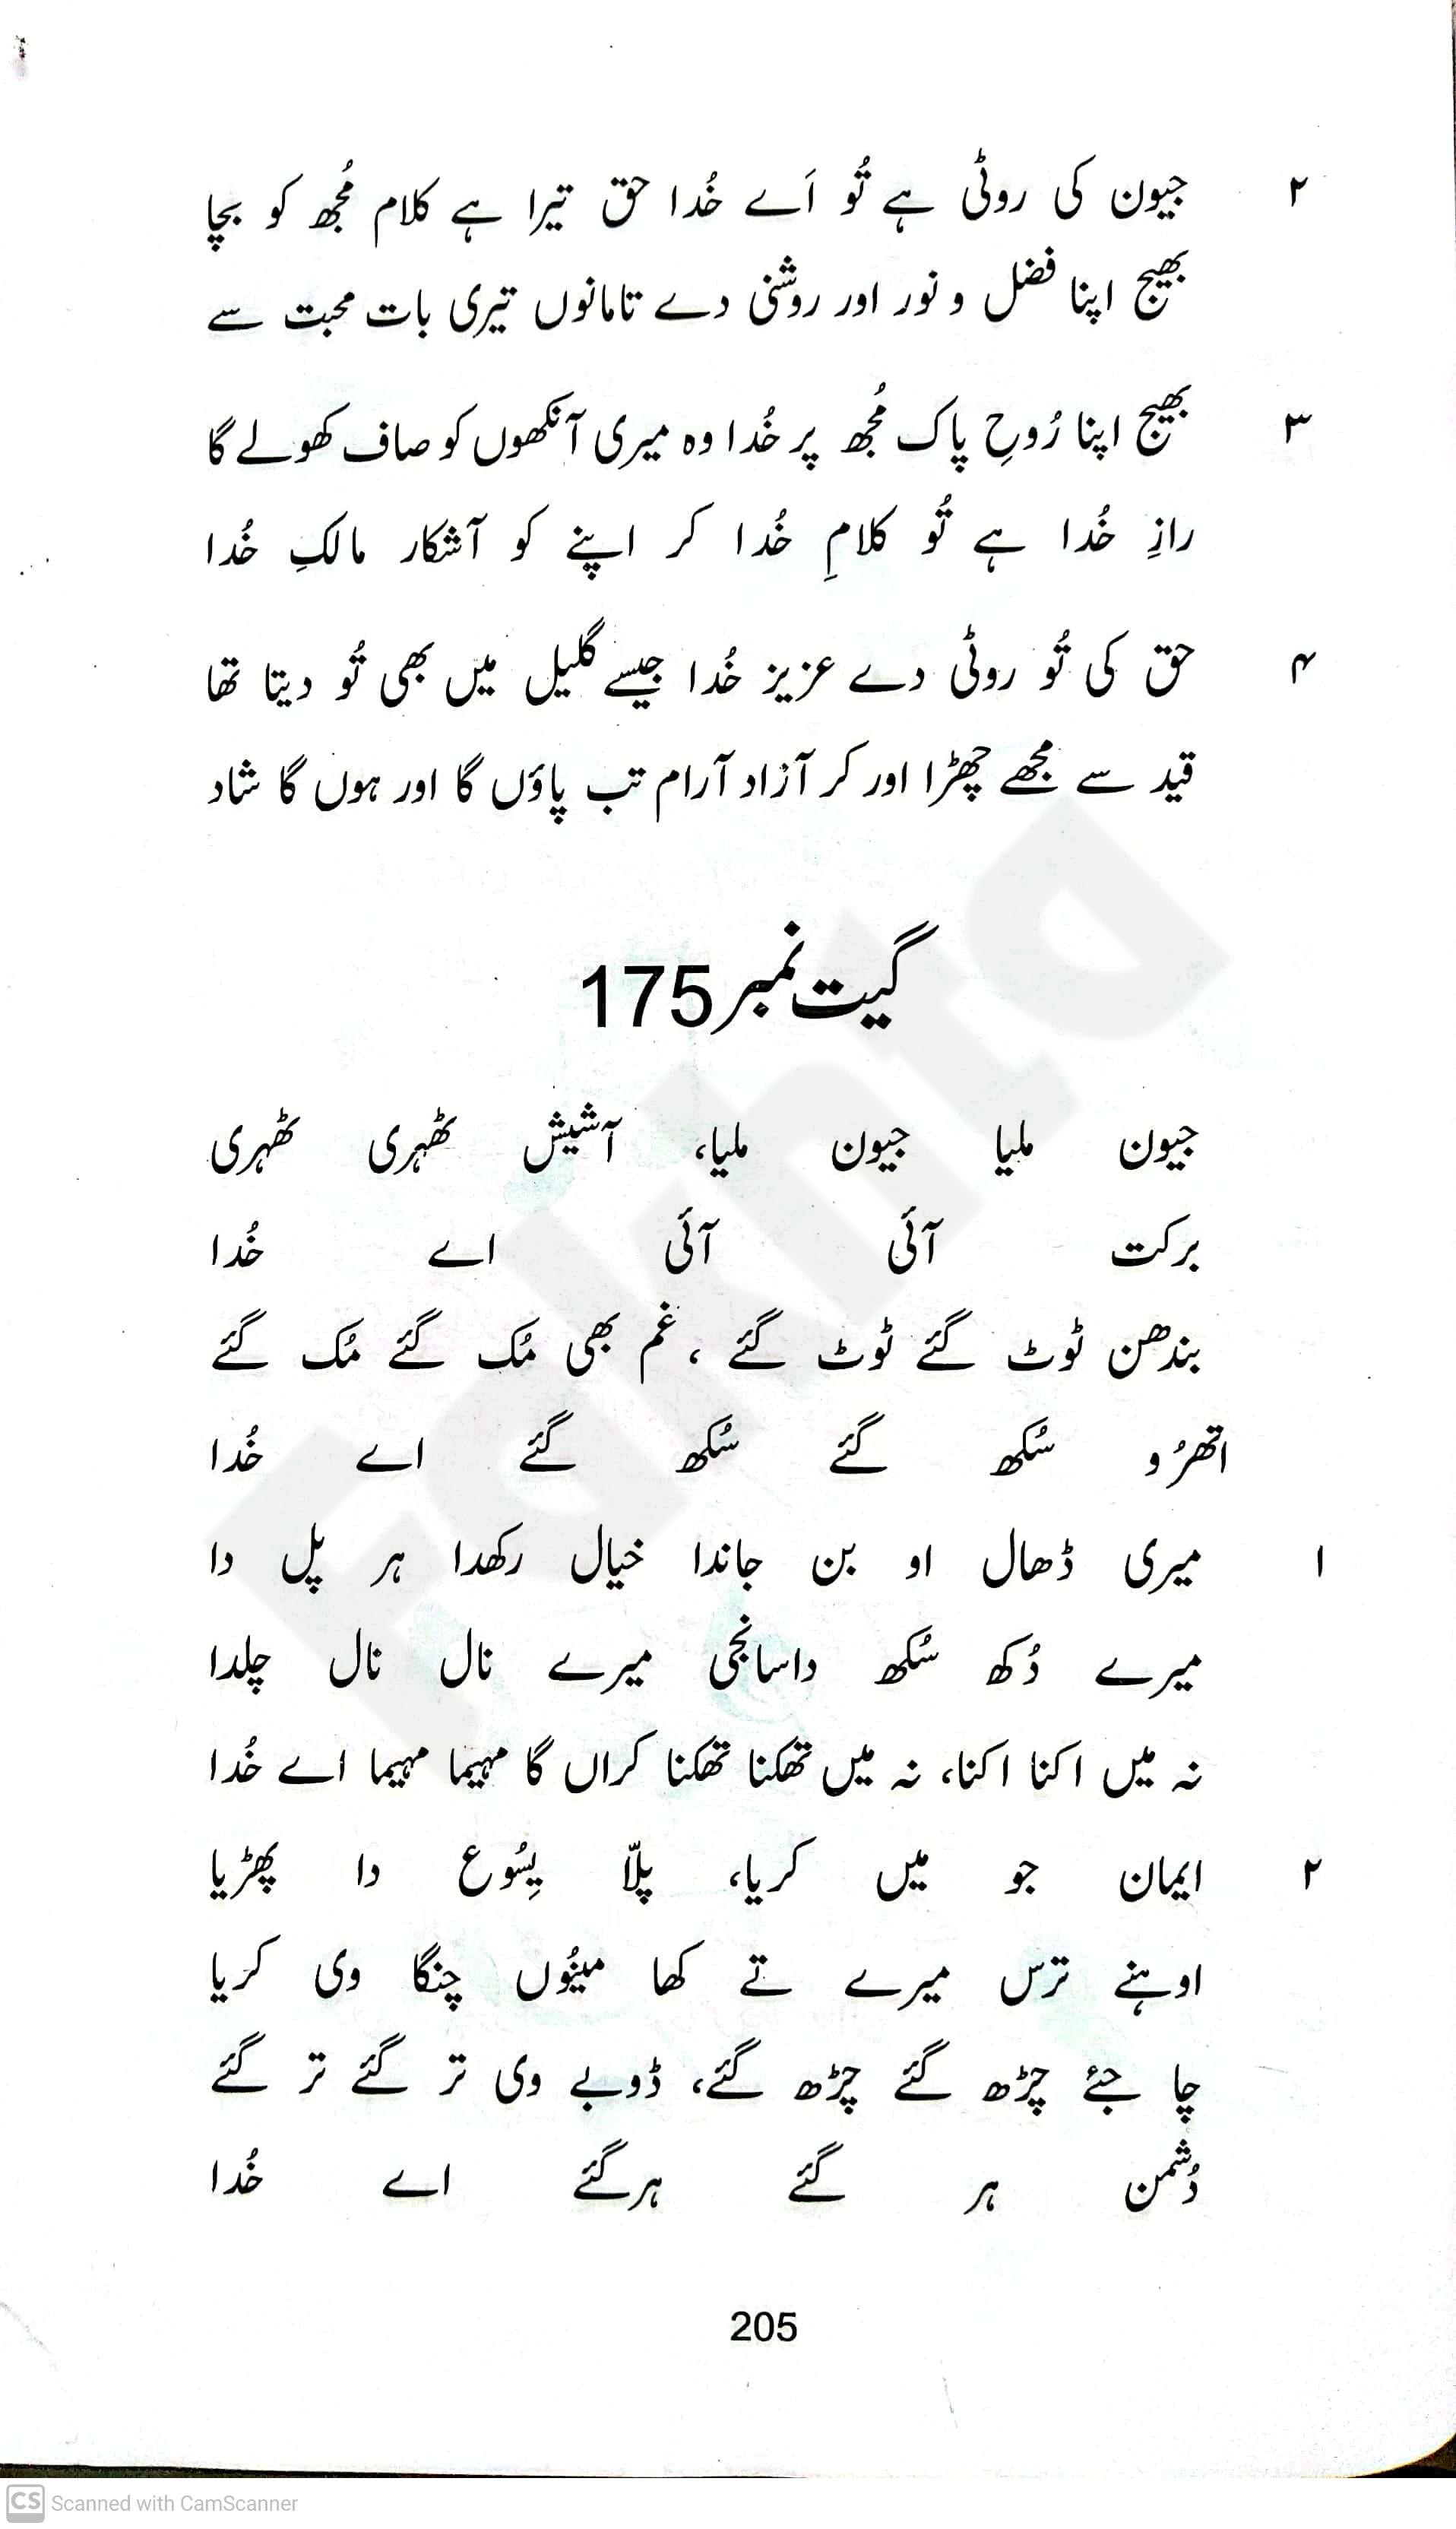 ۲ جیون کی روٹی ہے تُو اَے خُدا حق تیرا ہے کلام مُجھ کو بچا
بھیج اپنا فضل و نور اور روشنی دے تامانوں تیری بات محبت سے
۳ بھیج اپنا رُوحِ پاک مُجھ پر خُدا وہ میری آنکھوں کو صاف کھولے گا
رازِ خُدا ہے تُو کلامِ خُدا کر اپنے کو آشکار مالکِ خُدا
۴ حق کی تُو روٹی دے عزیز خُدا جیسے گلیل میں بھی تُو دیتا تھا
قید سے مجھے چھڑا اور کر آزاد آرام تب پاؤں گا اور ہوں گا شاد
گیت نمبر 175
جیون ملیا جیون ملیا، آشیش ٹھہری ٹھہری
برکت آئی آئی اے خُدا
بندھن ٹوٹ گئے ٹوٹ گئے ، غم بھی مُک گئے مُک گئے
اتھرُو سُکھ گئے سُکھ گئے اے خُدا
۱ میری ڈھال او بن جاندا خیال رکھدا ہر پل دا
میرے دُکھ سُکھ داسانجی میرے نال نال چلدا
نہ میں اکنا اکنا، نہ میں تھکنا تھکنا کراں گا مہیما مہیما اے خُدا
۲ ایمان جو میں کریا، پلّا یِسُوع دا پھڑیا
اوہنے ترس میرے تے کھا مینُوں چنگا وی کریا
چا جئے چڑھ گئے چڑھ گئے، ڈوبے وی تر گئے تر گئے
دُشمن ہر گئے ہرگئے اے خُدا
205
Fakhta
CS Scanned with CamScanner